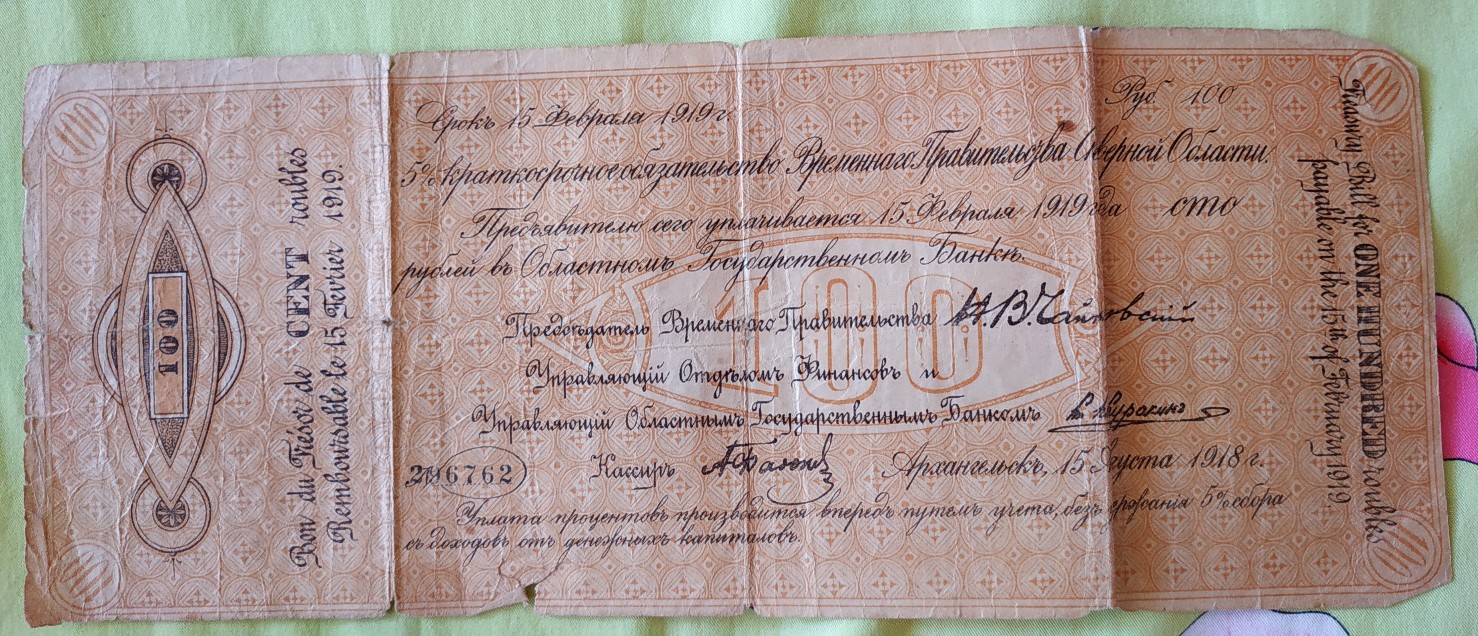 100
Bon du Trésor de CENT roubles
Remboursable le 15 Fevrier 1919.
Срокъ 15 Февраля 1919 г.
Руб. 100
5% краткосрочное обязательство Временнаго Правительства Северной Области.
Предъявителю сего уплачивается 15 Февраля 1919 года сто
рублей въ Областномъ Государственномъ Банкѣ.
100
Предсѣдатель Временнаго Правительства Н. В. Чайковскій
Управляющій Отдѣломъ Финансовъ и
Управляющій Областнымъ Государственнымъ Банкомъ
96762
Кассиръ
Архангельскъ, 15 Августа 1918 г.
Уплата процентовъ производится впередъ путемъ учета, безъ 5% сбора
съ доходовъ отъ денежныхъ капиталовъ.
Treasury Bill for ONE HUNDRED roubles
payable on the 15th of February 1919